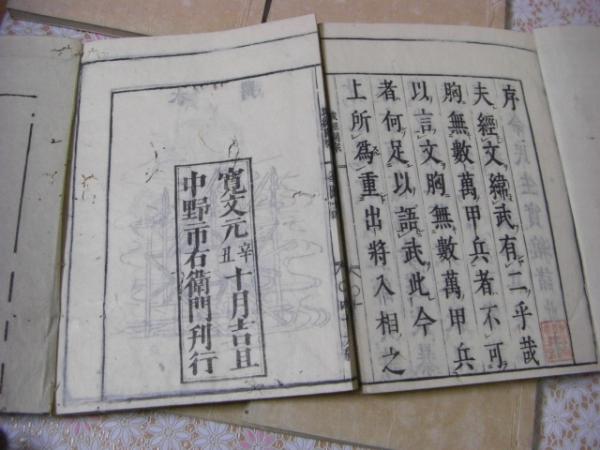 序
夫經文緯武有二乎哉
胸無數萬甲兵者不可
以言文胸無數萬甲兵
者何足以語武此今
上所爲重出將入相之
寛文元辛丑十月吉旦
中野市右衛門刊行